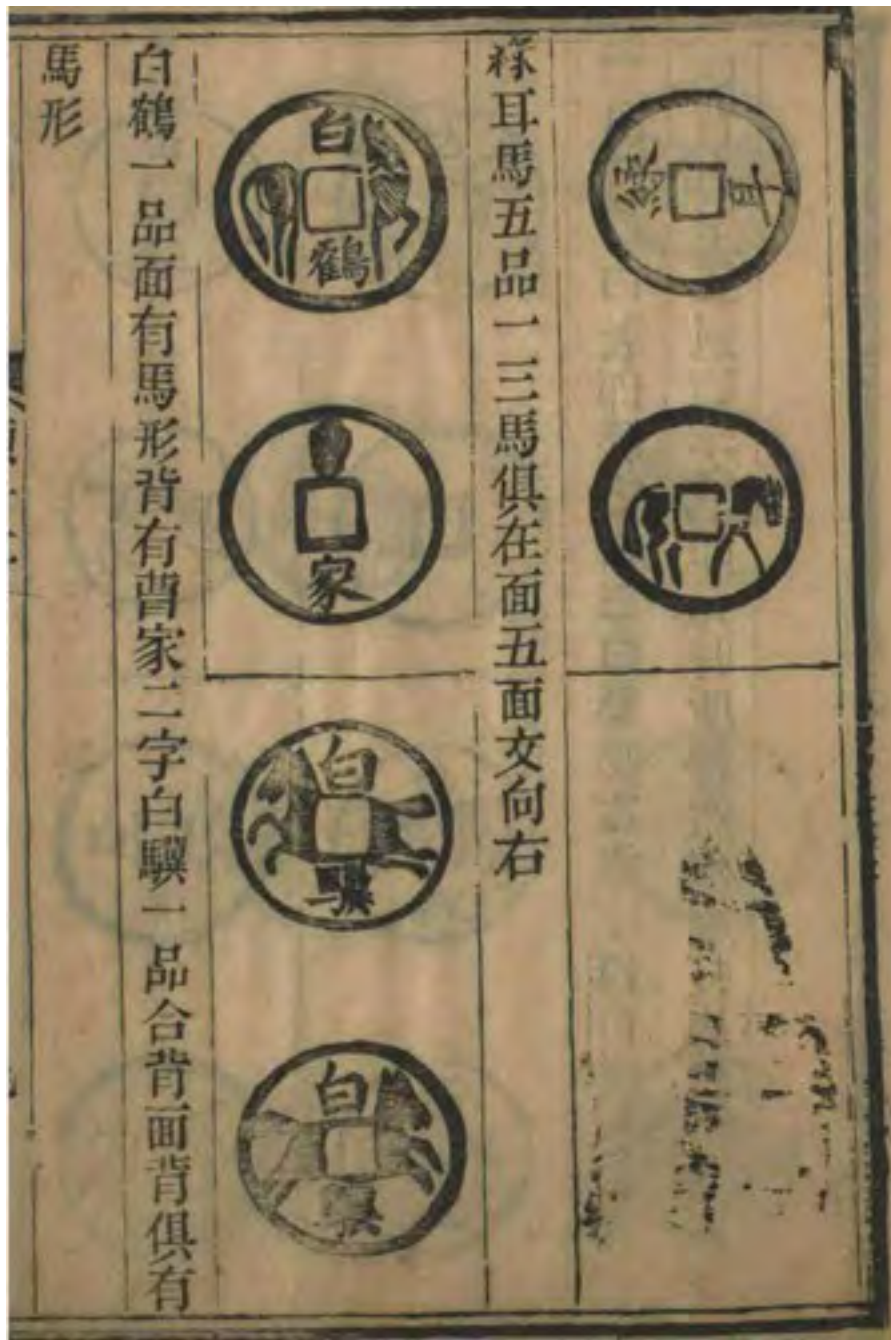 耳
耳馬五品一三馬俱在面五面文向右
白鶴
家
白驥
白驥
白鶴一品面有馬形背有曹家二字白驥一品合背面背俱有
馬形